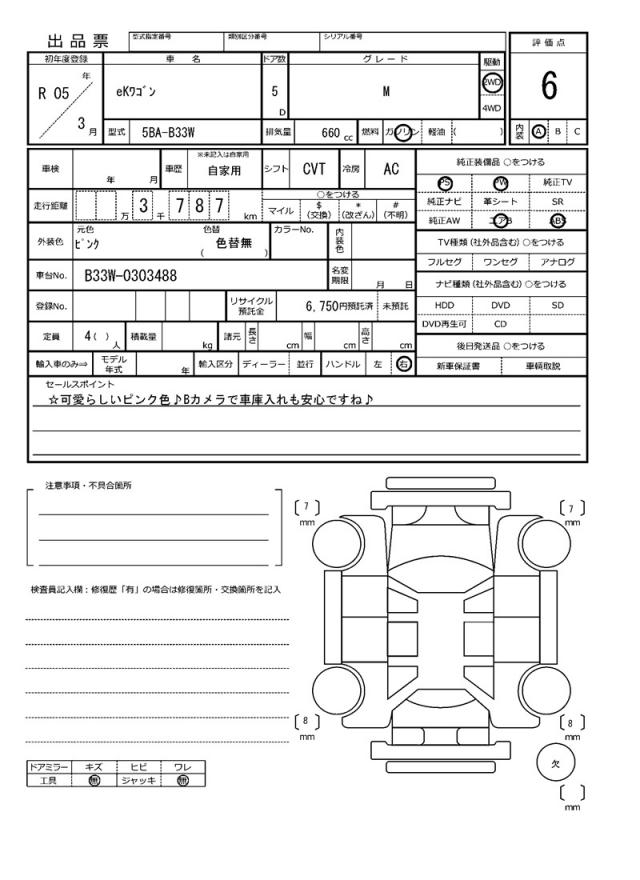 出品票 型式指定番号 類別区分番号 シリアル番号
評価点
6
初年度登録 車名 ドア数 グレード 駆動
R 05 年 3 月
eKﾜｺﾞﾝ 5 D M 2WD 4WD
型式 5BA-B33W 排気量 660 cc 燃料 ガソリン 軽油 ( )
内装 A B C
車検 年 月 車歴 ※未記入は自家用 自家用 シフト CVT 冷房 AC
走行距離 万 3 千 7 8 7 km
○をつける
マイル $(交換) *(改ざん) #(不明)
外装色 元色 ﾋﾟﾝｸ 色替 色替無 ( ) カラーNo. 内装色
車台No. B33W-0303488 名変期限 月 日
登録No. リサイクル預託金 6,750円預託済 未預託
定員 4 ( ) 人 積載量 kg 諸元 長さ cm 幅 cm 高さ cm
輸入車のみ⇒ モデル年式 年 輸入区分 ディーラー 並行 ハンドル 左 右
純正装備品 ○をつける
PS PW 純正TV
純正ナビ 革シート SR
純正AW エアB ABS
TV種類 (社外品含む) ○をつける
フルセグ ワンセグ アナログ
ナビ種類 (社外品含む) ○をつける
HDD DVD SD
DVD再生可 CD
後日発送品 ○をつける
新車保証書 車輌取説
セールスポイント
☆可愛らしいピンク色♪Bカメラで車庫入れも安心ですね♪
注意事項・不具合箇所
検査員記入欄：修復歴「有」の場合は修復箇所・交換箇所を記入
〔 7 〕 mm
〔 7 〕 mm
〔 8 〕 mm
〔 8 〕 mm
欠
〔 〕 mm
ドアミラー キズ ヒビ ワレ
工具 無 ジャッキ 無